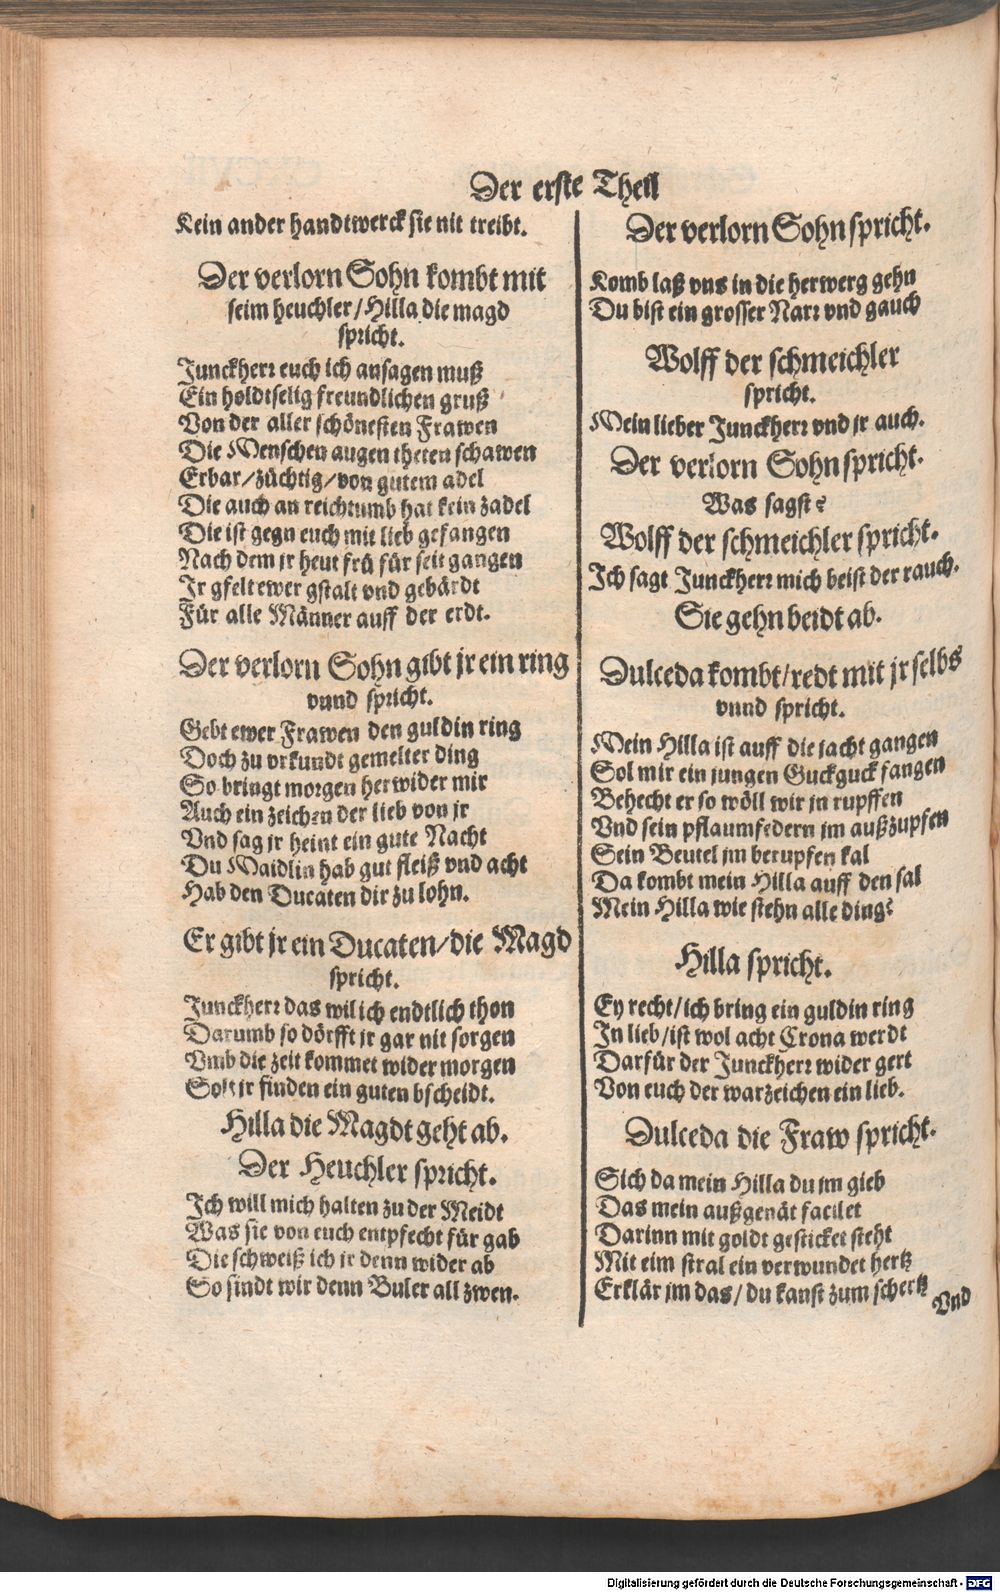 Der erste Theil
Kein ander handtwerck sie nit treibt.
Der verlorn Sohn kombt mit
seim heuchler/Hilla die magd
spricht.
Junckherr euch ich ansagen muß
Ein holdtselig freundlichen gruß
Von der aller schönesten Frawen
Die Menschen augen theten schawen
Erbar/züchtig/von gutem adel
Die auch an reichtumb hat kein zadel
Die ist gegn euch mit lieb gefangen
Nach dem jr heut frü für seit gangen
Jr gfelt ewer gstalt vnd gebärdt
Für alle Männer auff der erdt.
Der verlorn Sohn gibt jr ein ring
vnnd spricht.
Gebt ewer Frawen den guldin ring
Doch zu vrkundt gemelter ding
So bringt morgen herwider mir
Auch ein zeichen der lieb von jr
Vnd sag jr heint ein gute Nacht
Du Maidlin hab gut fleiß vnd acht
Hab den Ducaten dir zu lohn.
Er gibt jr ein Ducaten/die Magd
spricht.
Junckherr das wil ich endtlich thon
Darumb so dörfft jr gar nit sorgen
Vmb die zeit kommet wider morgen
Solt jr finden ein guten bscheidt.
Hilla die Magdt geht ab.
Der Heuchler spricht.
Ich will mich halten zu der Meidt
Was sie von euch entpfecht für gab
Die schweiß ich jr denn wider ab
So sindt wir denn Buler all zwen.
Der verlorn Sohn spricht.
Komb laß vns in die herwerg gehn
Du bist ein grosser Narr vnd gauch
Wolff der schmeichler
spricht.
Mein lieber Junckherr vnd jr auch.
Der verlorn Sohn spricht.
Was sagst?
Wolff der schmeichler spricht.
Ich sagt Junckherr mich beist der rauch.
Sie gehn beidt ab.
Dulceda kombt/redt mit jr selbs
vnnd spricht.
Mein Hilla ist auff die jacht gangen
Sol mir ein jungen Guckguck fangen
Behecht er so wöll wir jn rupffen
Vnd sein pflaumfedern jm außzupfen
Sein Beutel jm berupfen kal
Da kombt mein Hilla auff den sal
Mein Hilla wie stehn alle ding?
Hilla spricht.
Ey recht/ich bring ein guldin ring
In lieb/ist wol acht Crona werdt
Darfür der Junckherr wider gert
Von euch der warzeichen ein lieb.
Dulceda die Fraw spricht.
Sich da mein Hilla du jm gieb
Das mein außgenät facilet
Darinn mit goldt gesticket steht
Mit eim stral ein verwundet hertz
Erklär jm das/du kanst zum schertz
Vnd
Digitalisierung gefördert durch die Deutsche Forschungsgemeinschaft - DFG